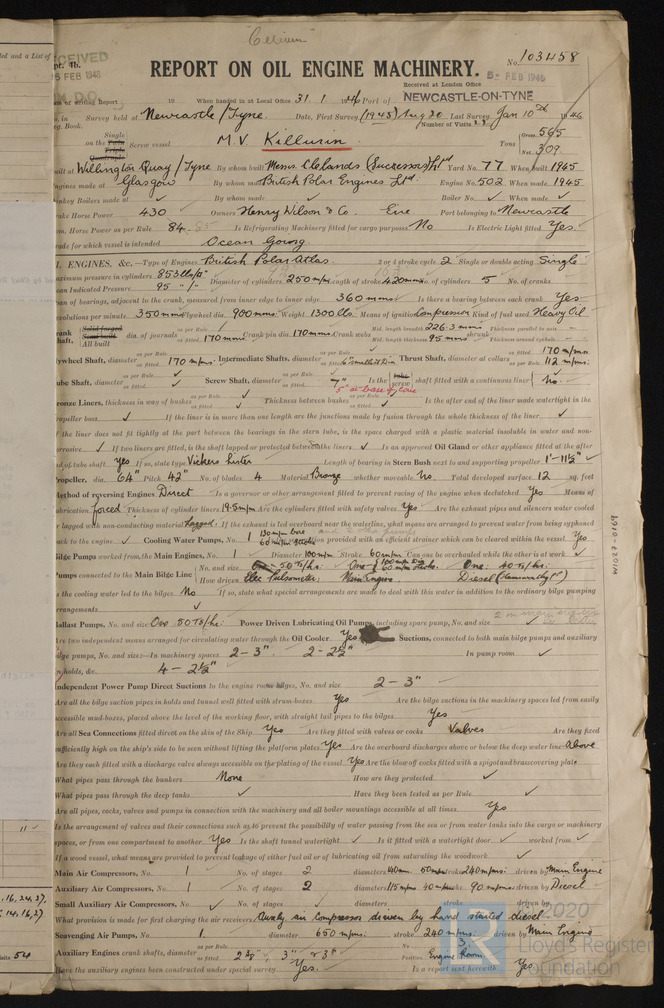 "Celium"
RECEIVED
6 FEB 1946
Rpt. 4b.
No. 103458
REPORT ON OIL ENGINE MACHINERY.
5- FEB 1946
Received at London Office
of writing Report 19 When handed in at Local Office 31. 1. 46 Port of NEWCASTLE-ON-TYNE
in Survey held at Newcastle / Tyne. Date, First Survey (1945) Aug 20 Last Survey Jan 10th 1946
g. Book. Number of Visits
Single on the Twin Triple Quadruple Screw vessel M.V. Killurin. Tons Gross 595 Net 309
built at Willington Quay / Tyne By whom built Messrs Clelands (Successors) Ltd Yard No. 77 When built 1945
Engines made at Glasgow By whom made British Polar Engines Ltd. Engine No. 502 When made 1945
Donkey Boilers made at ✓ By whom made ✓ Boiler No. ✓ When made ✓
Brake Horse Power 430 Owners Henry Wilson & Co. Eire Port belonging to Newcastle
Nom. Horse Power as per Rule 84. Is Refrigerating Machinery fitted for cargo purposes No Is Electric Light fitted Yes.
Trade for which vessel is intended Ocean Going.
ENGINES, &c.—Type of Engines British Polar Atlas. 2 or 4 stroke cycle 2 Single or double acting Single
Maximum pressure in cylinders 853 lbs/□" Diameter of cylinders 250 m/m Length of stroke 420 mms No. of cylinders 5 No. of cranks
Mean Indicated Pressure 95 " /"
Span of bearings, adjacent to the crank, measured from inner edge to inner edge 360 mms Is there a bearing between each crank Yes
Revolutions per minute 350 Flywheel dia. 900 mms. Weight 1300 lbs. Means of ignition Compression Kind of fuel used Heavy Oil
Crank Shaft, Solid forged Semi built All built dia. of journals as per Rule as fitted 170 mms Crank pin dia. 170 mms. Crank webs Mid. length breadth 226.3 mms Mid. length thickness 95 mms shrunk Thickness parallel to axis Thickness around eyehole
Flywheel Shaft, diameter as per Rule as fitted 170 m/ms. Intermediate Shafts, diameter as per Rule as fitted 6" Thrust Shaft, diameter at collars as per Rule as fitted 170 m/ms. 112 m/ms.
Tube Shaft, diameter as per Rule as fitted ✓ Screw Shaft, diameter as per Rule as fitted 7" Is the tube screw shaft fitted with a continuous liner No.
5" at base of cone
Bronze Liners, thickness in way of bushes as per Rule as fitted ✓ Thickness between bushes as per Rule as fitted ✓ Is the after end of the liner made watertight in the
propeller boss ✓ If the liner is in more than one length are the junctions made by fusion through the whole thickness of the liner. ✓
If the liner does not fit tightly at the part between the bearings in the stern tube, is the space charged with a plastic material insoluble in water and non-
corrosive ✓ If two liners are fitted, is the shaft lapped or protected between the liners ✓ Is an approved Oil Gland or other appliance fitted at the after
end of tube shaft Yes If so, state type Vickers Length of bearing in Stern Bush next to and supporting propeller 1'-11½" ✓
Propeller, dia. 64" Pitch 42" No. of blades 4 Material Bronze whether moveable No. Total developed surface 12 sq. feet
Method of reversing Engines Direct Is a governor or other arrangement fitted to prevent racing of the engine when declutched Yes Means of
lubrication forced Thickness of cylinder liners 19.5 m/m Are the cylinders fitted with safety valves Yes Are the exhaust pipes and silencers water cooled
or lagged with non-conducting material Lagged. If the exhaust is led overboard near the waterline, what means are arranged to prevent water from being syphoned
back to the engine ✓ Cooling Water Pumps, No. 1 130 m/m bore 60 m/m stroke provided with an efficient strainer which can be cleared within the vessel Yes
Bilge Pumps worked from the Main Engines, No. 1 Diameter 100 m/m Stroke 60 m/m Can one be overhauled while the other is at work ✓
Pumps connected to the Main Bilge Line No. and size One - 50 Ts/hr. One 100 m/m Dia 60 m/m Stroke. One: 40 Ts/hr.
How driven Elec Pulsometer. Main Engine. Diesel
Is the cooling water led to the bilges No If so, state what special arrangements are made to deal with this water in addition to the ordinary bilge pumping
arrangements ✓
Ballast Pumps, No. and size One 50 Ts/hr. Power Driven Lubricating Oil Pumps, including spare pump, No. and size
Are two independent means arranged for circulating water through the Oil Cooler Yes Suctions, connected to both main bilge pumps and auxiliary
bilge pumps, No. and size:—In machinery spaces 2 - 3" 2 - 2½" In pump room ✓
In holds, &c. 4 - 2½"
Independent Power Pump Direct Suctions to the engine room bilges, No. and size 2 - 3"
Are all the bilge suction pipes in holds and tunnel well fitted with strum-boxes Yes Are the bilge suctions in the machinery spaces led from easily
accessible mud-boxes, placed above the level of the working floor, with straight tail pipes to the bilges Yes
Are all Sea Connections fitted direct on the skin of the Ship Yes Are they fitted with valves or cocks Valves Are they fixed
sufficiently high on the ship's side to be seen without lifting the platform plates Yes Are the overboard discharges above or below the deep water line Above
Are they each fitted with a discharge valve always accessible on the plating of the vessel Yes Are the blow off cocks fitted with a spigot and brass covering plate
What pipes pass through the bunkers None How are they protected ✓
What pipes pass through the deep tanks ✓ Have they been tested as per Rule ✓
Are all pipes, cocks, valves and pumps in connection with the machinery and all boiler mountings accessible at all times. Yes
Is the arrangement of valves and their connections such as to prevent the possibility of water passing from the sea or from water tanks into the cargo or machinery
spaces, or from one compartment to another Yes Is the shaft tunnel watertight ✓ Is it fitted with a watertight door ✓ worked from ✓
If a wood vessel, what means are provided to prevent leakage of either fuel oil or of lubricating oil from saturating the woodwork ✓
Main Air Compressors, No. 1 No. of stages 2 diameters stroke 240 m/ms. driven by Main Engine
Auxiliary Air Compressors, No. 1 No. of stages 2 diameters 115 m/ms 40 m/ms stroke 90 m/ms driven by Diesel
Small Auxiliary Air Compressors, No. ✓ No. of stages ✓ diameters stroke driven by
What provision is made for first charging the air receivers Auxly air compressor driven by hand started diesel
Scavenging Air Pumps, No. 1. diameter 650 m/ms. stroke 240 m/ms. driven by Main Engine
Auxiliary Engines crank shafts, diameter as per Rule as fitted 3" No. 3. Position Engine Room.
Have the auxiliary engines been constructed under special survey Yes. Is a report sent herewith Yes
W1023-0169
© 2020
Lloyd's Register
Foundation